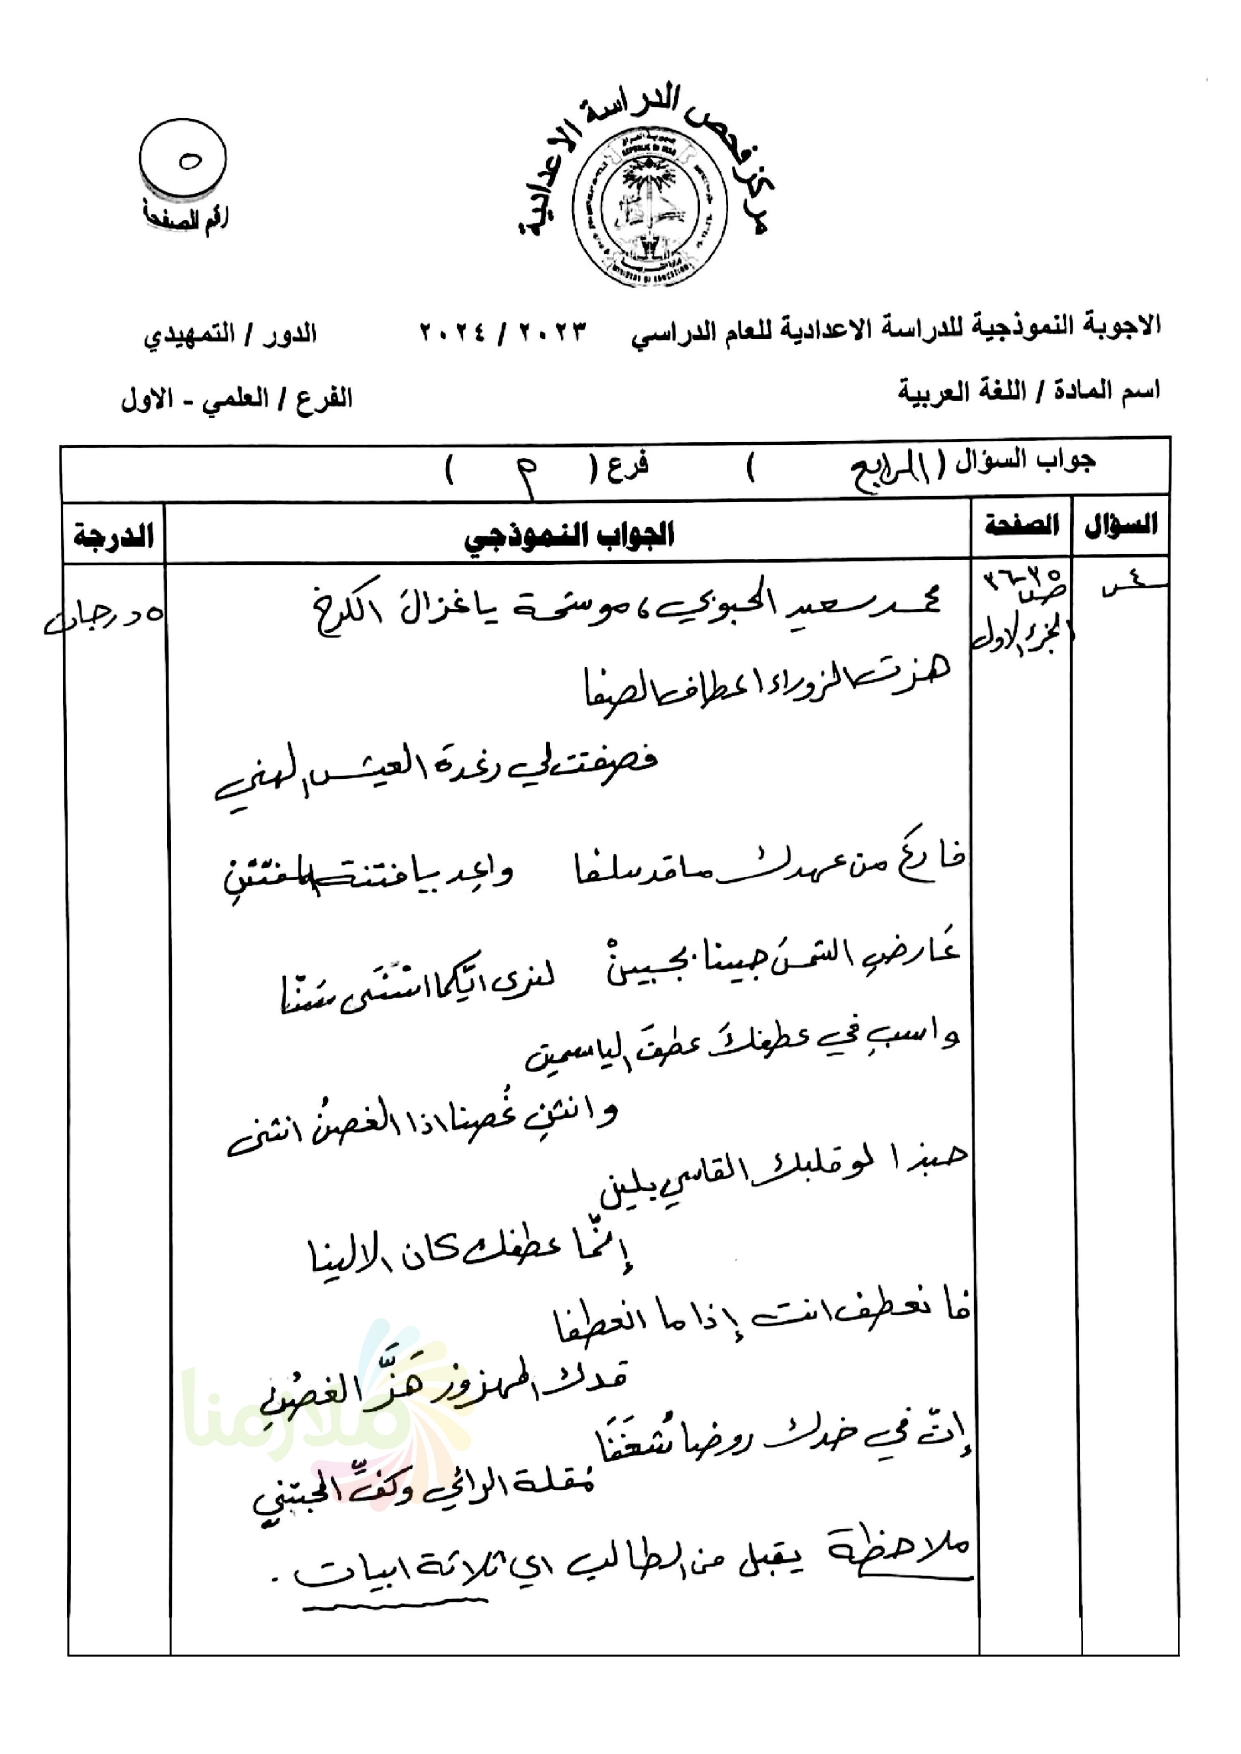 مركز فحص الدراسة الاعدادية
٥
رقم الصفحة
جمهورية العراق
REPUBLIC OF IRAQ
وزارة التربية
MINISTRY OF EDUCATION
الاجوبة النموذجية للدراسة الاعدادية للعام الدراسي ٢٠٢٣ / ٢٠٢٤ الدور / التمهيدي
اسم المادة / اللغة العربية الفرع / العلمي - الاول
جواب السؤال ( الرابع ) فرع ( م )
السؤال الصفحة الجواب النموذجي الدرجة
س٤ ص٣٥-٣٦ محمد سعيد الحبوبي، موشحة ياغزالَ الكرخ ٥ درجات
الجزء الاول
هزت الزوراء اعطاف الصفا
فصفت لي رغدة العيش الهني
فارعَ من عهدك ماقد سلفا واعِد يافتنة المفتتنِ
عَارضِ الشمسَ جبينا بجبينْ لنرى ايّكما اسْنَى سَنَا
واسبِ في عطفكَ عطفَ الياسمين
وانثنِ غُصنا اذا الغصنُ انثنى
حبذا لو قلبك القاسي يلين
إنمّا عطفك كان الالينا
فانعطف انت إذا ما انعطفا
قدك المهزوز هَزَّ الغصُنِ
إنّ في خدك روضا شُغَفَا
مُقلة الرائي وكفِّ المجتني
ملاحظة يقبل من الطالب اي ثلاثة ابيات .
ملازمنا